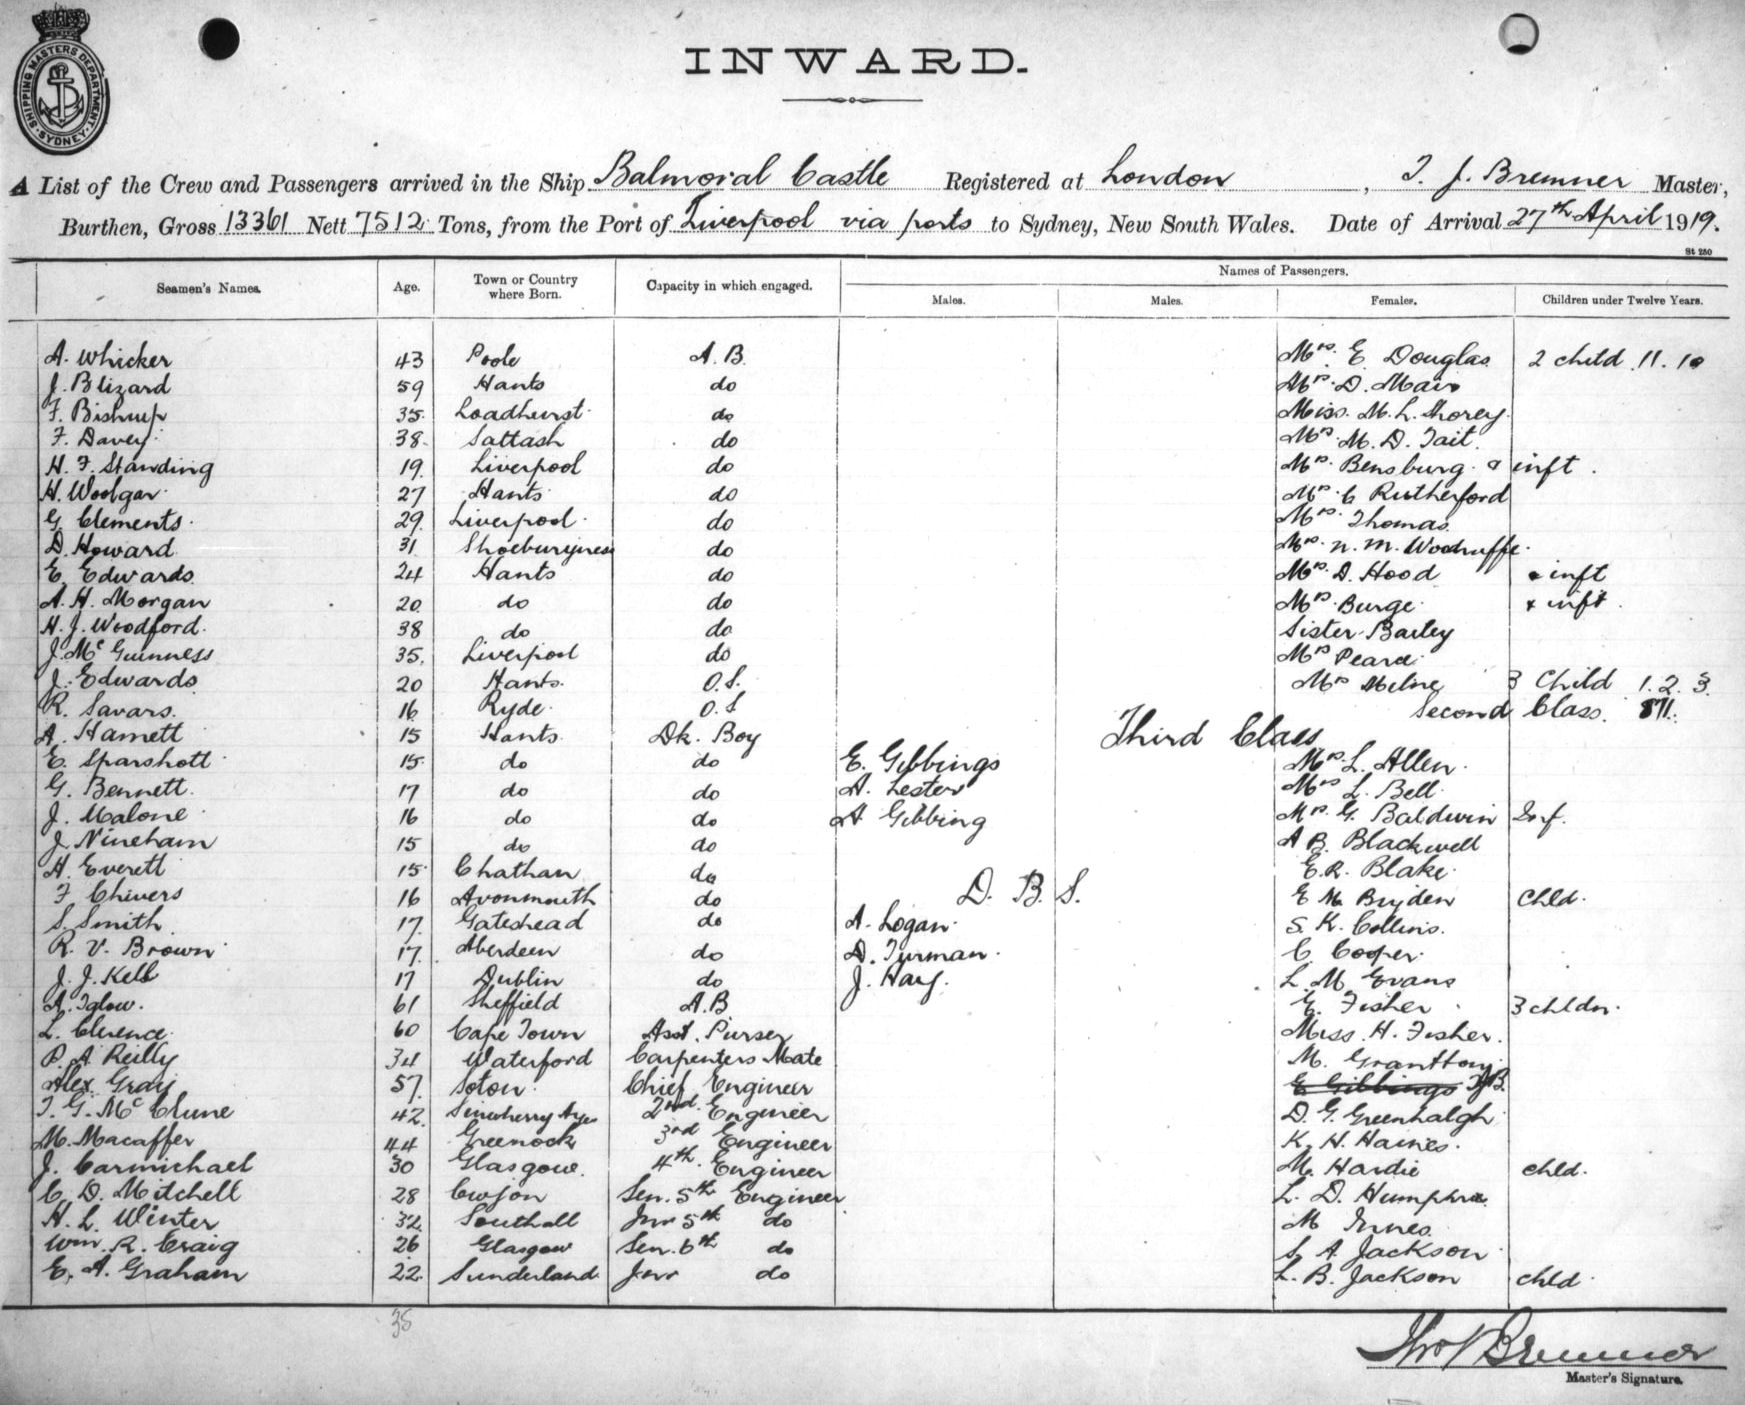 SHIPPING MASTERS DEPARTMENT · SYDNEY ·
INWARD.
A List of the Crew and Passengers arrived in the Ship Balmoral Castle Registered at London, T. J. Bremner Master,
Burthen, Gross 13361 Nett 7512 Tons, from the Port of Liverpool via ports to Sydney, New South Wales. Date of Arrival 27th April 1919.
St 280
Names of Passengers.
Seamen's Names. Age. Town or Country where Born. Capacity in which engaged. Males. Males. Females. Children under Twelve Years.
A. Whicker 43 Poole A.B. Mrs. E Douglas 2 child 11. 10
J. Blizard 59 Hants do Mrs. D. Mair
F. Bishup 35 Loadhurst do Miss. M. L. Shorey
F. Davey 38 Saltash do Mrs. M. D. Tait
H. F. Standing 19 Liverpool do Mrs. Bensburg & inft.
H. Woolgar 27 Hants do Mrs. C Rutherford
G. Clements 29 Liverpool do Mrs. Thomas
D. Howard 31 Shoeburyness do Mrs. N. M. Woodruffe
E. Edwards 24 Hants do Mrs. D. Hood & inft
A. H. Morgan 20 do do Mrs. Burge & inft.
H. J. Woodford 38 do do Sister Bailey
J. McGuinness 35 Liverpool do Mrs Pearce
J. Edwards 20 Hants O.S. Mrs Milne 3 Child 1. 2. 3.
R. Savars. 16 Ryde O.S Second Class. 871.
A. Hamett 15 Hants Dk. Boy Third Class
E. Sparshott 15 do do E. Gibbings Mrs. L. Allen
G. Bennett 17 do do A. Lester Mrs L. Bell
J. Malone 16 do do A Gibbing Mrs. G. Baldwin Inf.
J Nineham 15 do do A B. Blackwell
H. Everett 15 Chathan do E. R. Blake
F Chivers 16 Avonmouth do D. B. S. E M Bryden Chld.
S. Smith 17 Gateshead do A. Logan S. K. Collins.
R. V. Brown 17 Aberdeen do D. Turman C. Cooper
J. J. Kelb 17 Dublin do J. Hay. L. M. Evans
A. Iglow. 61 Sheffield A.B E. Fisher 3 chldn.
L. Clerence 60 Cape Town Asst. Purser Miss. H. Fisher.
P. A. Reilly 34 Waterford Carpenters Mate M.
Alex Gray 57 Soton Chief Engineer E Gibbings
T. G. McClune 42 2nd Engineer D. G. Greenhalgh
M. Macaffer 44 Greenock 3rd Engineer K. H. Haines.
J. Carmichael 30 Glasgow. 4th. Engineer M. Hardie chld.
C. D. Mitchell 28 Sen. 5th Engineer L. D. Humphrie
H. L. Winter 32 Southall Jnr 5th do M Innes.
Wm. R. Craig 26 Glasgow Sen. 6th do S. A. Jackson
E. A. Graham 22 Sunderland Jnr do L. B. Jackson chld
35
Thos J Bremner
Master's Signature.